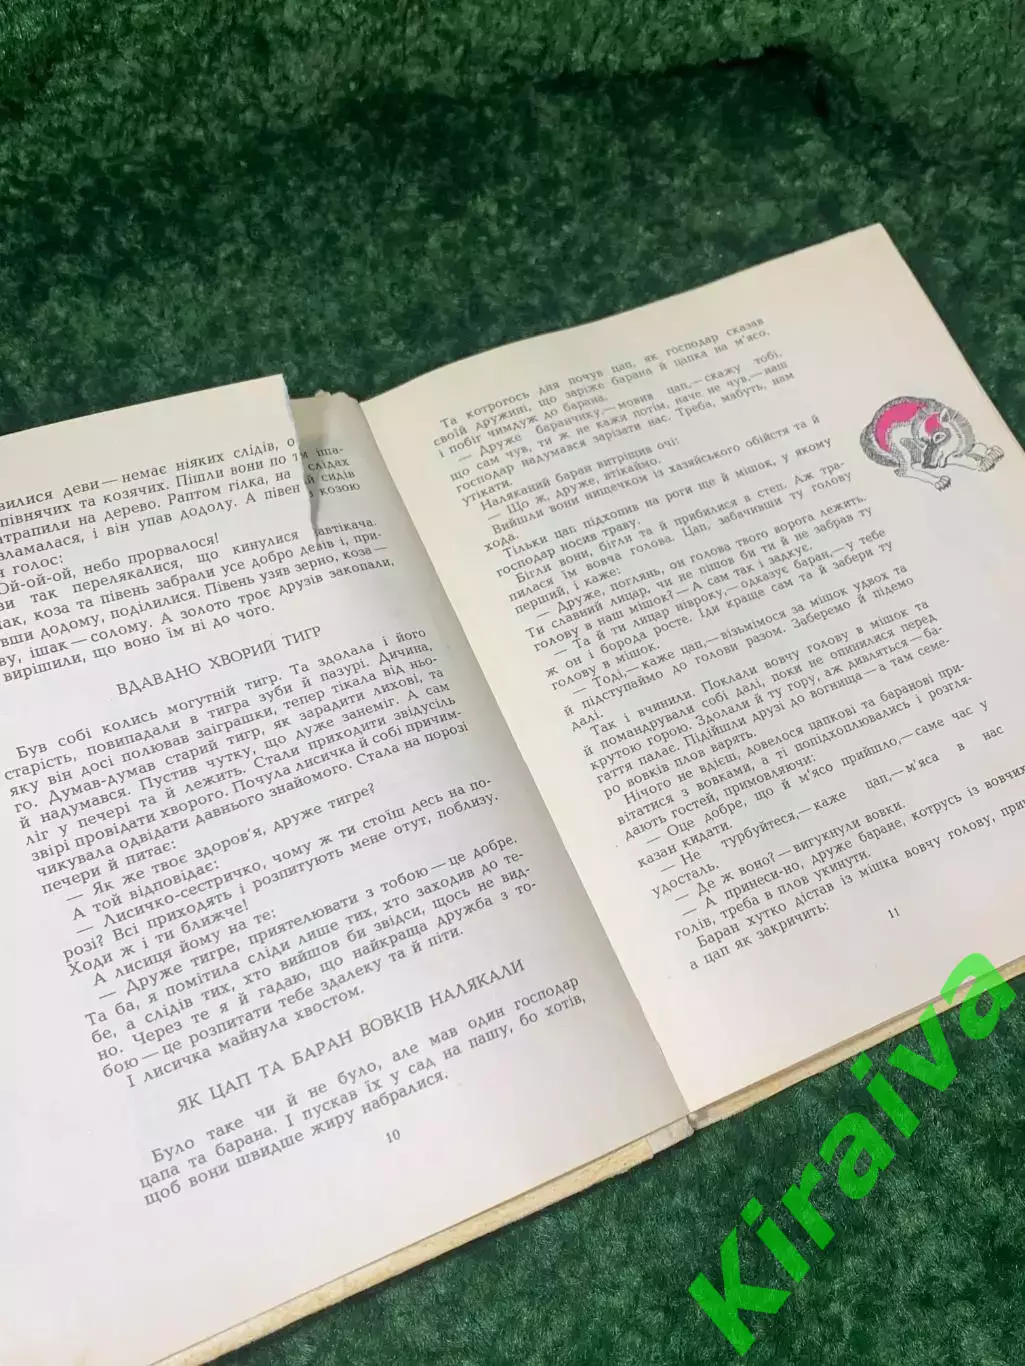 вилися деви — немає ніяких слідів, о
півнячих та козячих. Пішли вони по тім іша-
слідах
трапили на дерево. Раптом гілка, на
й сидів
зламалася, і він упав додолу. А півен
з козою
голос:
Ой-ой-ой, небо прорвалося!
ви так перелякалися, що кинулися навтікача.
ак, коза та півень забрали усе добро девів і, при-
вши додому, поділилися. Півень узяв зерно, коза —
ву, ішак — солому. А золото троє друзів закопали,
вирішили, що воно їм ні до чого.
ВДАВАНО ХВОРИЙ ТИГР
Був собі колись могутній тигр. Та здолала і його
старість, повипадали в тигра зуби й пазурі. Дичина,
яку він досі полював заіграшки, тепер тікала від ньо-
го. Думав-думав старий тигр, як зарадити лихові, та
й надумався. Пустив чутку, що дуже занеміг. А сам
ліг у печері та й лежить. Стали приходити звідусіль
звірі провідати хворого. Почула лисичка й собі причим-
чикувала одвідати давнього знайомого. Стала на порозі
печери й питає:
— Як же твоє здоров'я, друже тигре?
А той відповідає:
— Лисичко-сестричко, чому ж ти стоїш десь на по-
розі? Всі приходять і розпитують мене отут, поблизу.
Ходи ж і ти ближче!
А лисиця йому на те:
— Друже тигре, приятелювати з тобою — це добре.
Та ба, я помітила сліди лише тих, хто заходив до те-
бе, а слідів тих, хто вийшов би звідси, щось не вид-
но. Через те я й гадаю, що найкраща дружба з то-
бою — це розпитати тебе здалеку та й піти.
І лисичка майнула хвостом.
ЯК ЦАП ТА БАРАН ВОВКІВ НАЛЯКАЛИ
Було таке чи й не було, але мав один господар
цапа та барана. І пускав їх у сад на пашу, бо хотів,
щоб вони швидше жиру набралися.
10
Та котрогось дня почув цап, як господар сказав
своїй дружині, що заріже барана й цапка на м'ясо,
і побіг чимдуж до барана.
— Друже баранчику, — мовив цап, — скажу тобі,
що сам чув, ти ж не кажи потім, наче не чув, — наш
господар надумався зарізати нас. Треба, мабуть, нам
утікати.
Наляканий баран витріщив очі:
— Що ж, друже, втікаймо.
Вийшли вони нищечком із хазяйського обійстя та й
хода.
Тільки цап підхопив на роги ще й мішок, у якому
господар носив траву.
Бігли вони, бігли та й прибилися в степ. Аж тра-
пилася їм вовча голова. Цап, забачивши ту голову
перший, і каже:
— Друже, поглянь, он голова твого ворога лежить.
Ти славний лицар, чи не пішов би ти й не забрав ту
голову в наш мішок? — А сам так і задкує.
— Та й ти лицар нівроку, — одказує баран, — у тебе
ж он і борода росте. Іди краще сам та й забери ту
голову в мішок.
— Тоді, — каже цап, — візьмімося за мішок удвох та
й підступаймо до голови разом. Заберемо й підемо
далі.
Так і вчинили. Поклали вовчу голову в мішок та
й помандрували собі далі, поки не опинилися перед
крутою горою. Здолали й ту гору, аж дивляться — ба-
гаття палає. Підійшли друзі до вогнища — а там семе-
ро вовків плов варять.
Нічого не вдієш, довелося цапкові та баранові при-
вітатися з вовками, а ті попідхоплювались і розгля-
дають гостей, примовляючи:
— Оце добре, що й м'ясо прийшло, — саме час у
казан кидати.
— Не турбуйтеся, — каже цап, — м'яса в нас
удосталь.
— Де ж воно? — вигукнули вовки.
— А принеси-но, друже баране, котрусь із вовчих
голів, треба в плов укинути.
Баран хутко дістав із мішка вовчу голову,
а цап як закричить:
11
Kiraiva